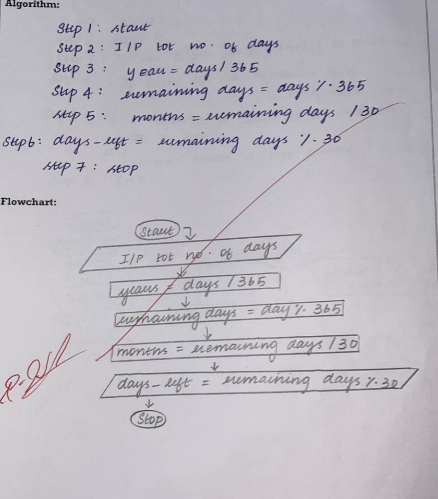 Algorithm:
Step 1 : start
Step 2 : I/P tot no. of days
Step 3 : year = days / 365
Step 4 : remaining days = days %. 365
Step 5 : months = remaining days / 30
Step6 : days-left = remaining days %. 30
Step 7 : stop
Flowchart:
Start
I/P tot no. of days
years = days / 365
remaining days = day %. 365
months = remaining days / 30
days-left = remaining days %. 30
Stop